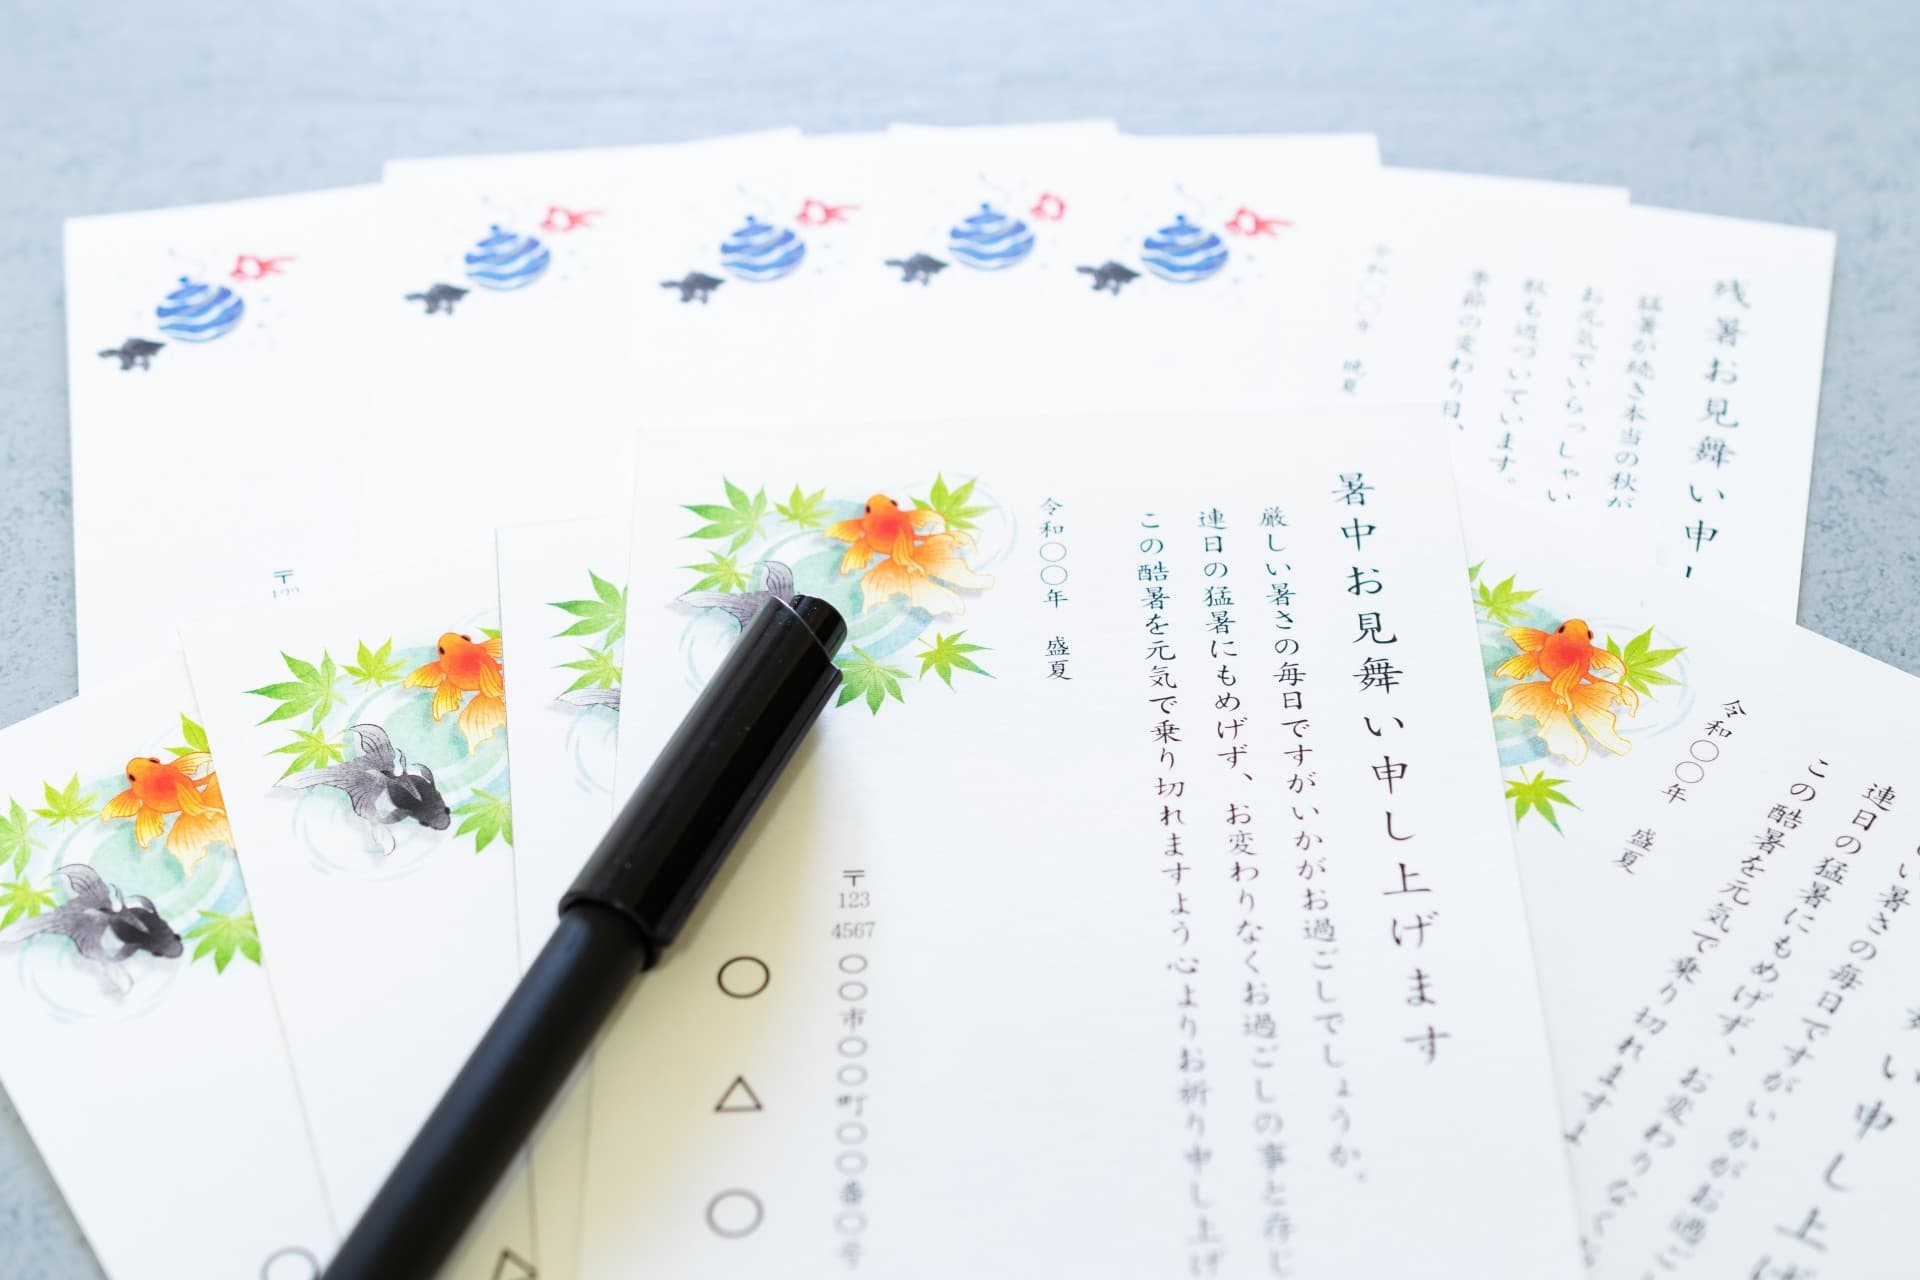 暑中お見舞い申し上げます
厳しい暑さの毎日ですがいかがお過ごしでしょうか。
連日の猛暑にもめげず、お変わりなくお過ごしの事と存じ
この酷暑を元気で乗り切れますよう心よりお祈り申し上げ
令和〇〇年 盛夏
〒
123
4567
〇〇市〇〇町〇〇番〇号
〇△〇
残暑お見舞い申し
猛暑が続き本当の秋が
お元気でいらっしゃい
秋も近づいています。
季節の変わり目、
令和〇〇年 晩夏
い申し上げ
い暑さの毎日ですがいかがお過ご
連日の猛暑にもめげず、お変わりなく
この酷暑を元気で乗り切れますよ
令和〇〇年 盛夏
〒